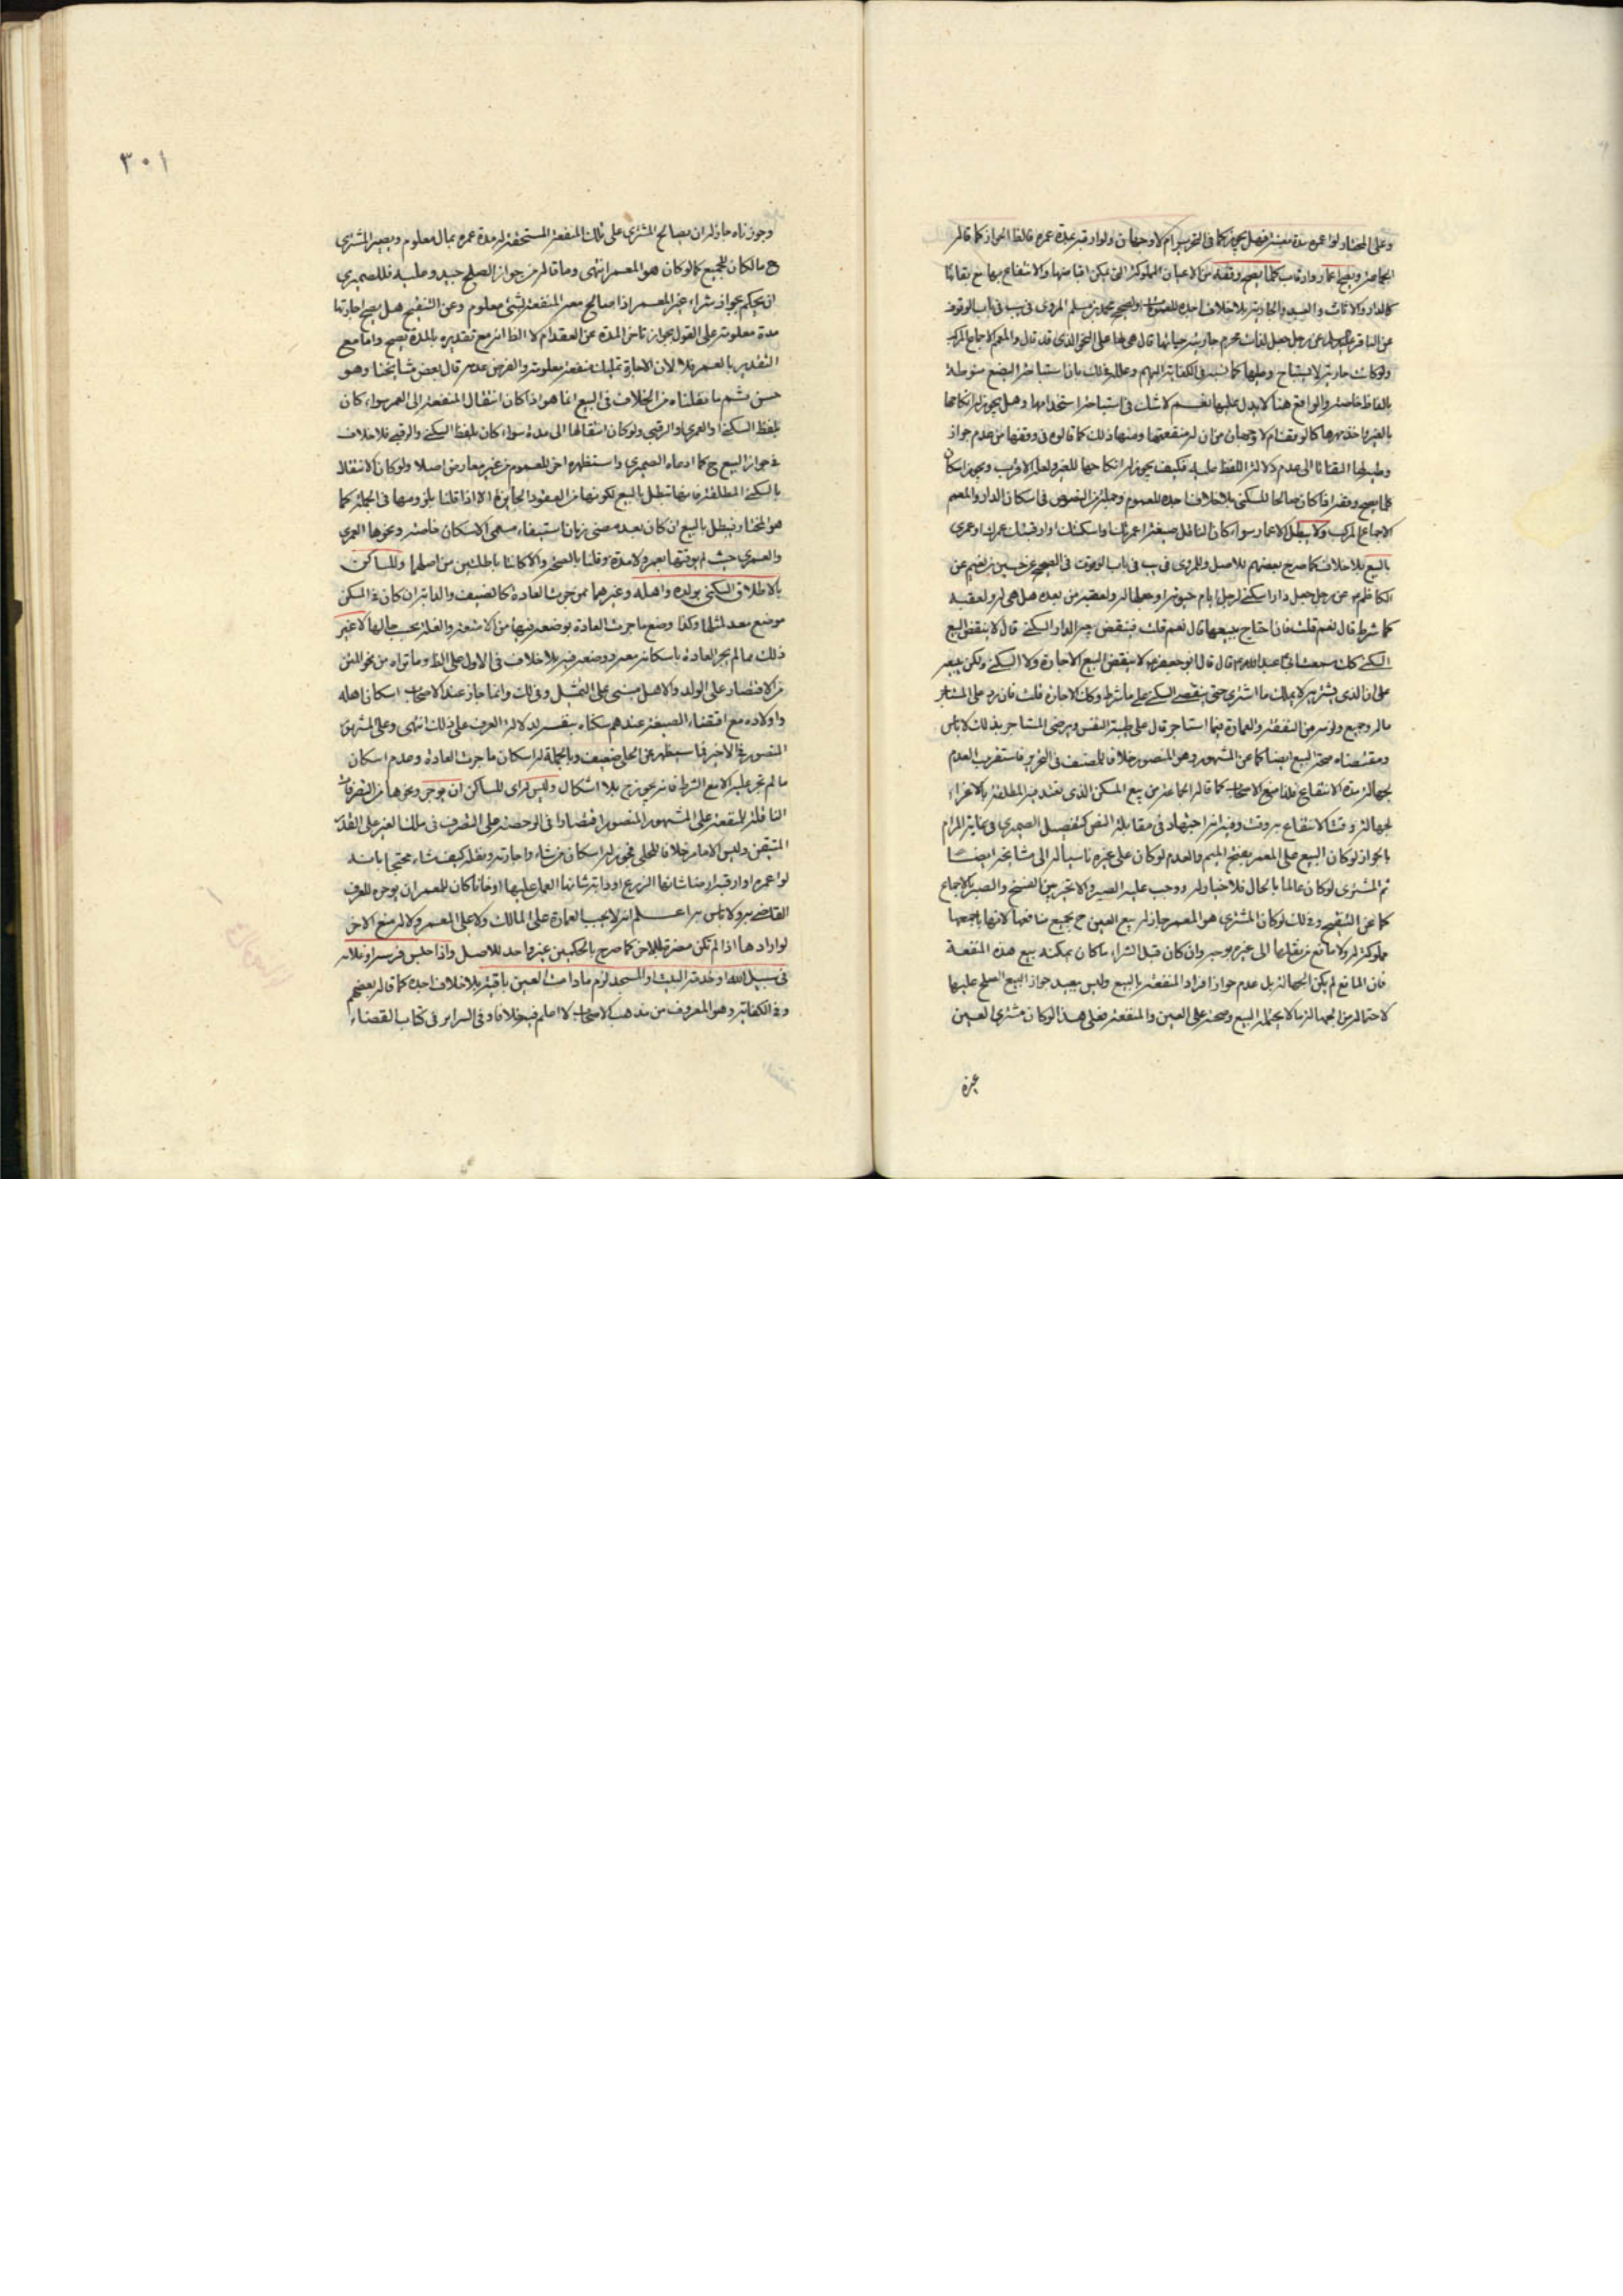 وعلى المختار لو اعمره مدة معينة فهل يجوز كما في التحرير ام لا وجهان ولو ارقبه بمدة عمره فالظ الجواز كما قاله
الجماعة ويصح اعمار وارقاب كلما يصح وقفه من الاعيان المملوكة التي يمكن اقباضها والانتفاع بها مع بقائها
كالدار والاثاث والعبيد والجارية بلا خلاف اجده للعموم والصحيح محمد بن مسلم المروي في يب في باب الوقوف
عن الباقر عن رجل جعل لذات محرم جاريته حياتها قال هي لها على النحو الذي قد قال والمعم الاجماع المركب
ولو كانت جارية لا يستباح وطيها كما نسبه في الكفاية اليهم وعلله في ذلك بان استباحة البضع منوطة
بالفاظ خاصة والواقع هنا لا يدل عليها نعم لا شك في استباحة استخدامها وهل يجوز له انكاحها
بالغير واخذ مهرها كالو مقام لا وجهان من ان له منفعتها ومنها ذلك كما قالوه في وقفها من عدم جواز
وطيه لها التفاتا الى عدم دلالة اللفظ عليه فكيف يجوز له انكاحها للغير ولعله الاقرب ويجوز اسكان
كلما يصح وقفه اذا كان صالحا للسكنى بلا خلاف اجده للعموم وجملة من النصوص في اسكان الدار والمعم
الاجماع المركب ولا يبطل الاعمار سواء كان الناقل صيغة اعمرتك واسكنتك او ارقبتك عمرك او عمري
بالبيع بلا خلاف كما صرح بعضهم للاصل وللمروي في يب في باب الوقوف في الصحيح عن حسين بن نعيم عن
الكاظم عن رجل جعل دارا سكنى لرجل ايام حيوته او جعلها له ولعقبه من بعده هل هي له ولعقبه
كما شرط قال نعم قلت فان احتاج يبيعها قال نعم قلت فينقض بيعه الدار السكنى قال لا ينقض البيع
السكنى كك سمعت ابي عبد الله ع قال قال ابو جعفر ع لا ينقض البيع الاجارة ولا السكنى ولكن يبيعه
على ان الذي يشتريه لا يملك ما اشترى حتى ينقضي السكنى على ما شرط وكك الاجارة قلت فان رد على المستاجر
ماله وجميع ما لزمه من النفقة والعمارة فيما استاجر قال على طيبة النفس ويرضى المستاجر بذلك لا باس
ومقتضاه صحة البيع ايضا كما عن المشهور وهو المنصور خلافا للمصنف في التحرير فاستقرب العدم
لجهالة مدة الانتفاع فلذا منع الاصحاب كما قاله الجماعة من بيع المسكن الذي تعتد فيه المطلقة بالاقراء
لجهالة وقت الانتفاع به وقت وفيه انه اجتهاد في مقابلة النص كتفصيل الصيمري في غاية المرام
بالجواز لو كان البيع على المعمر بفتح الميم والعدم لو كان على غيره ناسبا له الى مشايخه ايضا
ثم المشترى لو كان عالما بالحال فلا خيار له ووجب عليه الصبر والا تخير بين الفسخ والصبر بالاجماع
كما عن التنقيح وذلك لو كان المشتري هو المعمر جاز له بيع العين ح بجميع منافعها لانها باجمعها
مملوكة له ولا مانع من نقلها الى غيره بوجه وان كان قبل الشراء ما كان يمكنه بيع هذه المنفعة
فان المانع لم يكن الجهالة بل عدم جواز افراد المنفعة بالبيع وليس ببعيد جواز البيع الصلح عليها
لاحتماله من الجهالة ما لا يحتمله البيع وصحته على العين والمنفعة فعلى هذا لو كان مشترى العين
غيره
٣٠١
وجوزناه جاز له ان يصالح المشتري على تلك المنفعة المستحقة له مدة عمره بمال معلوم ويصير المشترى
ح مالكا للجميع كما لو كان هو المعمر انتهى وما قاله من جواز الصلح جيد وعليه فللصيمري
ان يحكم بجواز شراء غير المعمر اذا صالح معه المنفعة لشيء معلوم وعن التنقيح هل يصح اجارتها
مدة معلومة على القول بجواز تاخر المدة عن العقد ام لا الظ انه مع تقديره بالمدة يصح واما مع
التقدير بالعمر فلا لان الاجارة تمليك منفعة معلومة والفرض عدمه قال بعض مشايخنا وهو
حسن ثم ما نقلناه من الخلاف في البيع انما هو اذا كان انتقال المنفعة الى العمر سواء كان
بلفظ السكنى او العمرى او الرقبى ولو كان انتقالها الى مدة سواء كان بلفظ السكنى والرقبى فلا خلاف
في جواز البيع ح كما ادعاه الصيمري واستظهره اخر للعموم من غير معارض اصلا ولو كان الانتقال
بالسكنى المطلقة فانها تبطل بالبيع لكونها من العقود الجايزة الا اذا قلنا بلزومها في الجملة كما
هو المختار فيبطل بالبيع ان كان بعد مضي زمان استيفاء مسمى الاسكان خاصة ونحوها العمرى
والعمرى حيث لم يوقتها بعمر ولا مدة وقلنا بالصحة والا كانتا باطلتين من اصلهما وللساكن
بالاطلاق السكنى بولده واهله وغيرهما ممن جرت العادة كالضيف والدابة ان كان في المسكن
موضع معد لمثلها وكذا وضع ما جرت العادة بوضعه فيها من الامتعة والغلة بحسب حالها لا غير
ذلك مما لم يجر العادة باسكانه معه ووضعه فيه بلا خلاف في الاول على الظ وما تراه من نحو المتن
من الاقتصار على الولد والاهل مبنى على التمثيل وفي لك وانما جاز عند الاصحاب اسكان اهله
واولاده مع اقتضاء الصيغة عندهم سكناه بنفسه لدلالة العرف على ذلك انتهى وعلى المشهور
المنصور في الاخير فما سيظهر عن الحلي ضعيف وبالجملة له اسكان ما جرت العادة وعدم اسكان
ما لم تجر عليه الا مع الشرط فانه يجوز ح بلا اشكال وليس له اى للساكن ان يوجر وغيرها من التصرفات
الناقلة للمنفعة على المشهور المنصور اقتصارا في الوحصة على التصرف في ملك الغير على القدر
المتيقن وليس الا ما مر خلافا للحلي فجوز له اسكان من شاء واجارته ونقله كيف شاء محتجا بانه
لو اعمره او ارقبه ارضا شانها الزرع او دابة شانها العمل عليها او خانا كان للمعمر ان يوجره للعرف
القاضي به ولا باس به اعلم انه لا يجب العمارة على المالك ولا على المعمر ولا له منع الاخر
لو ارادها اذا لم تكن مضرة للاخر كما صرح بالحكمين غير واحد للاصل واذا حبس فرسه او غلامه
في سبيل الله او خدمة البيت والمسجد لزم ما دامت العين باقية بلا خلاف اجده كما قاله بعضهم
وفي الكفاية وهو المعروف من مذهب الاصحاب لا اعلم فيه خلافا وفي السرائر في كتاب القضاء